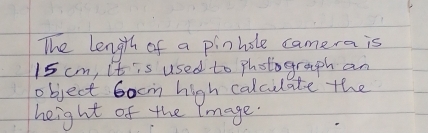 The length of a pinhole camera is
15 cm, it is used to photograph an
object 60cm high calculate the
height of the image.